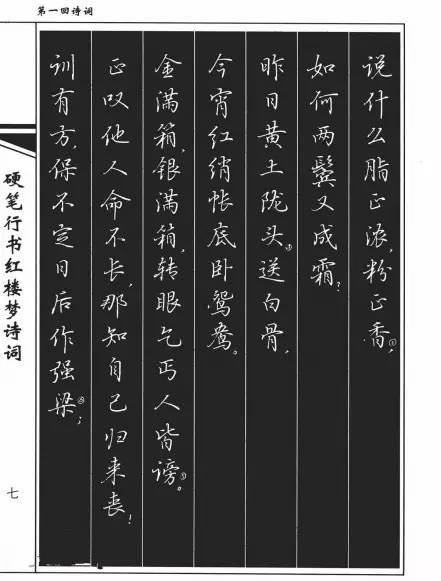 第一回诗词
说什么脂正浓，粉正香①，
如何两鬓又成霜？
昨日黄土陇头②送白骨，
今宵红绡帐底卧鸳鸯。
金满箱，银满箱，转眼乞丐人皆谤③。
正叹他人命不长，那知自己归来丧！
训有方，保不定日后作强梁④；
硬笔行书红楼梦诗词
七